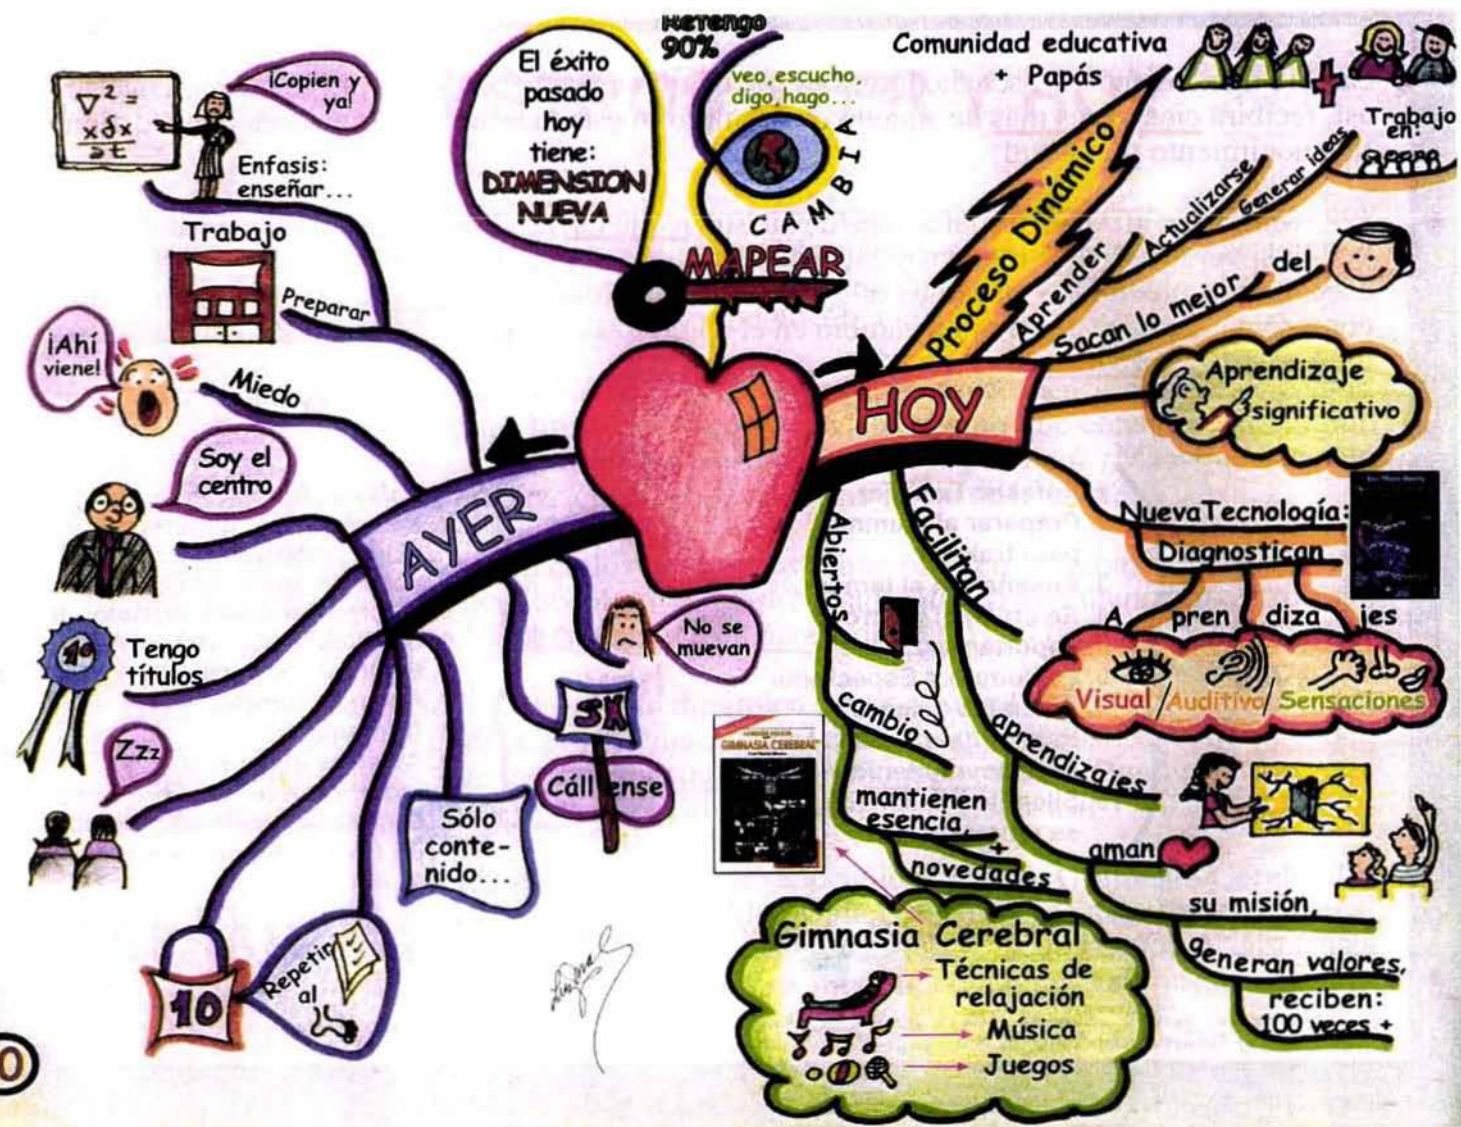 ¡Copien y
ya!
∇² =
x δx
∂t
Enfasis:
enseñar...
Trabajo
Preparar
¡Ahí
viene!
Miedo
Soy el
centro
AYER
1º
Tengo
títulos
Zzz
10
Repetir
al
Sólo
conte-
nido...
Cállense
No se
muevan
El éxito
pasado
hoy
tiene:
DIMENSION
NUEVA
Retengo
90%
veo, escucho,
digo, hago...
CAMBIA
MAPEAR
HOY
Comunidad educativa
+ Papás
+
Proceso Dinámico
Aprender
Actualizarse
Generar ideas
Trabajo
en:
Sacan lo mejor
del
Aprendizaje
significativo
Nueva Tecnología:
Diagnostican
A pren diza jes
Visual / Auditivo / Sensaciones
Facilitan
aprendizajes
aman
su misión,
generan valores,
reciben:
100 veces +
Abiertos
cambio
mantienen
esencia,
+
novedades
GIMNASIA CEREBRAL
Gimnasia Cerebral
Técnicas de
relajación
Música
Juegos
0